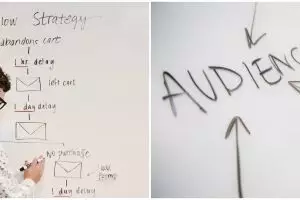 low Strategy
abandons cart
1 hr delay
left cart
1 day delay
No purchase
1 day delay
AUDIENC